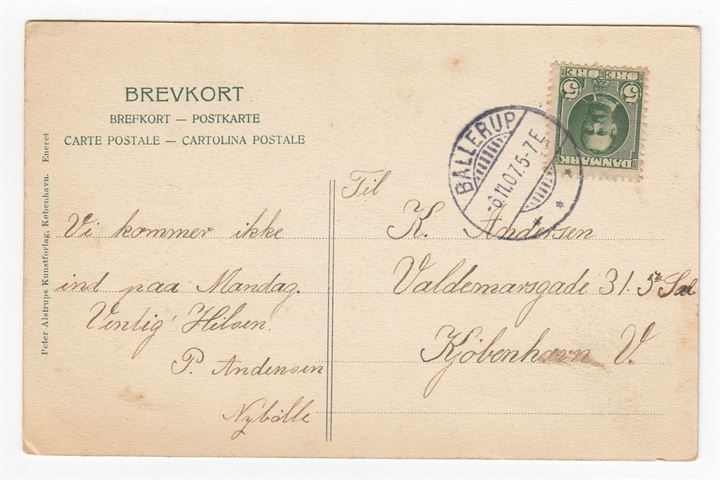 BREVKORT
BREFKORT — POSTKARTE
CARTE POSTALE — CARTOLINA POSTALE
Peter Alstrups Kunstforlag, København. Eneret
Vi kommer ikke
ind paa Mandag.
Venlig Hilsen.
P. Andersen
Nybølle
BALLERUP
-6.11.07.5-7E
5 5
ØRE ØRE
DANMARK
Til
K. Andersen
Valdemarsgade 31. 5t Sal
Kjöbenhavn V.